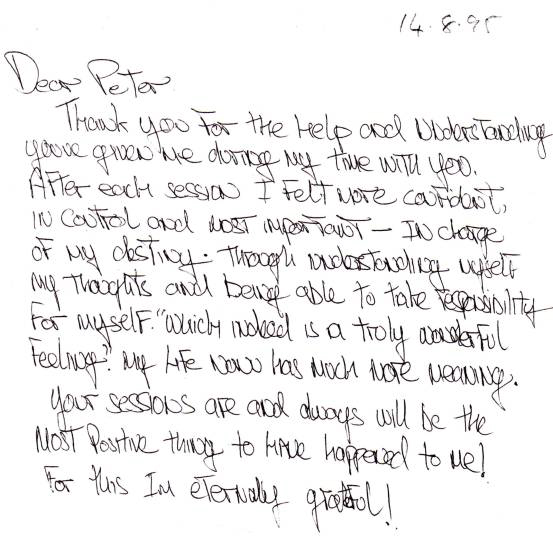 14.8.95
Dear Peter
Thank you for the Help and Understanding
youve given me during my time with you.
After each session I felt more confidant,
in control and most important - In charge
of my destiny. Through understanding myself
my thoughts and being able to take responsibility
for myself. "which indeed is a truly wonderful
feeling". My life now has much more meaning.
Your sessions are and always will be the
Most Positive thing to have happened to me!
For this Im eternally grateful!